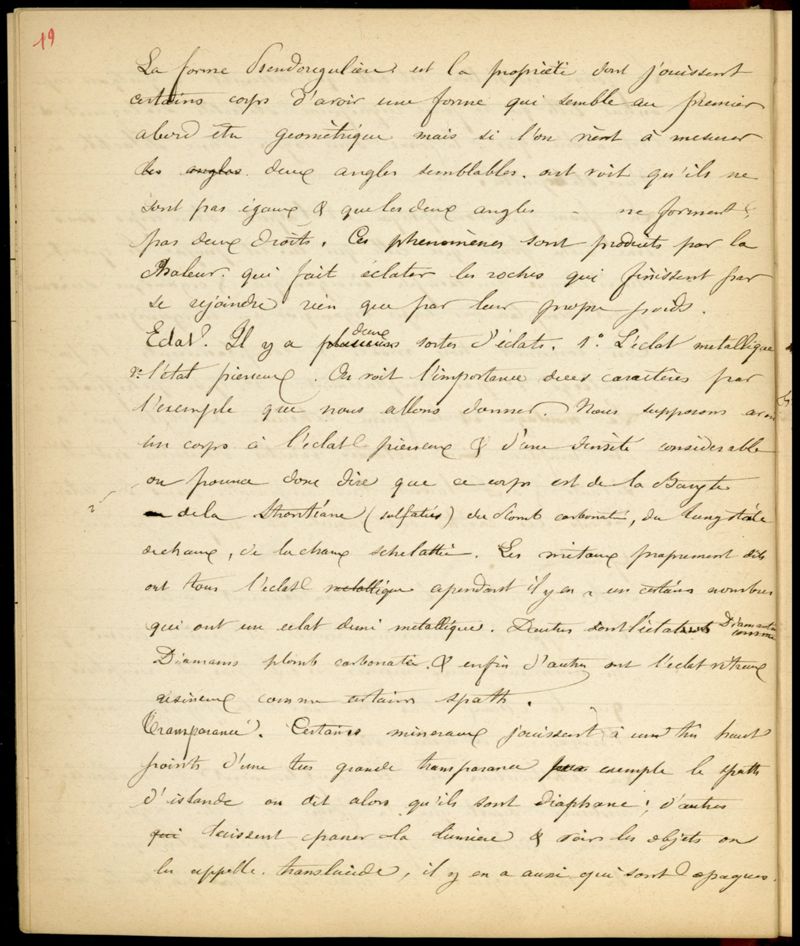 19
La forme Pseudorégulière est la propriété dont jouissent
certains corps d'avoir une forme qui semble au premier
abord être géométrique mais si l'on vient à mesurer
les angles deux angles semblables. on voit qu'ils ne
sont pas égaux & que les deux angles - ne forment
pas deux droits. Ces phenomènes sont produits par la
chaleur qui fait éclater les roches qui finissent par
se rejoindre rien que par leur propre poids.
Eclat. Il y a plusieurs deux sortes d'éclats. 1° L'éclat metallique
2° l'état pierreux. On voit l'importance de ces caractères par
l'exemple que nous allons donner. Nous supposons avoir
un corps à l'éclat pierreux & d'une densité considerable
on pourra donc dire que ce corps est de la Baryte
de la Strontiane (sulfatées) du Plomb carbonaté, du tungstate
de chaux, de la chaux . Les métaux proprement dits
ont tous l'éclat metallique cependant il y en a un certains nombres
qui ont un eclat demi metallique. D'autres ont l'éclat Diamantin comme
Diamans plomb carbonatée. & enfin d'autres ont l'eclat vitreux
résineux comme certains spath.
Transparence. Certains mineraux jouissent à un très haut
points d'une tres grande transparence exemple le spath
d'islande on dit alors qu'ils sont diaphane; d'autres
qui laissent passer la lumiere & voir les objets on
les appelle translucide, il y en a aussi qui sont opaques.